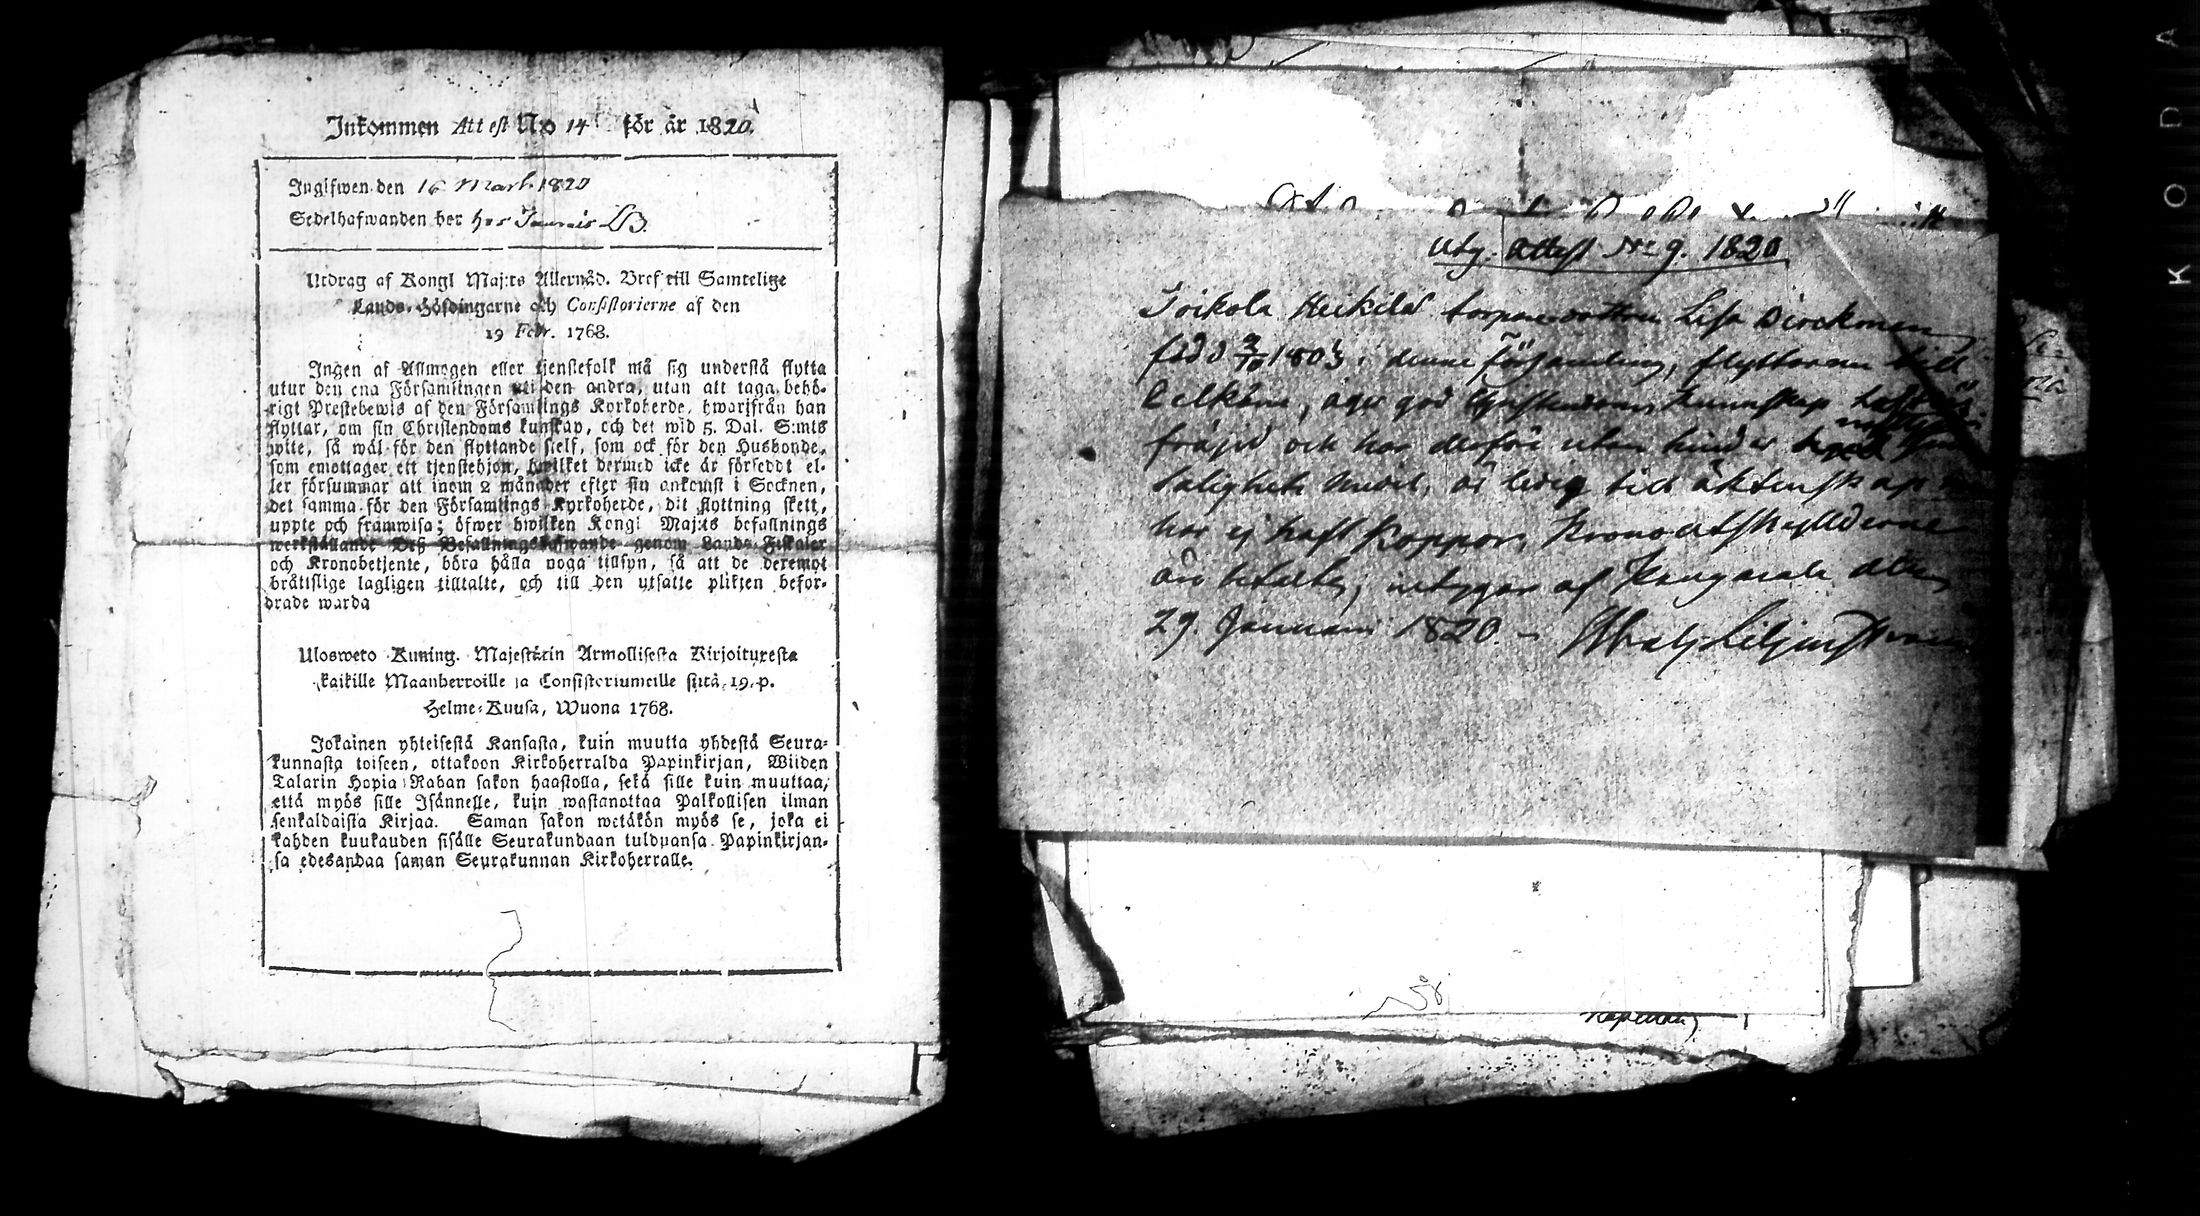 Inkommen Attest No 14 för år 1820.
Ingifwen den 16 Mart. 1820
Sedelhafwanden bor hos
Utdrag af Kongl Maj:ts Allernåd. Bref till Samtelige
Lands-Höfdingarne och Consistorierne af den
19 Febr. 1768.
Ingen af Allmogen eller tjenstefolk må sig understå flytta
utur den ena Församlingen uti den andra, utan att taga behö-
rigt Prestebewis af den Församlings Kyrkoherde, hwarifrån han
flyttar, om sin Christendoms kunskap, och det wid 5. Dal. S:mts
wite, så wäl för den flyttande sielf, som ock för den Husbonde,
som emottager ett tjenstehjon, hwilket dermed icke är försedt el-
ler försummar att inom 2 månader efter sin ankomst i Socknen,
det samma för den Församlings Kyrkoherde, dit flyttning skett,
uppte och framwisa; öfwer hwilken Kongl Maj:ts befallnings
werkställande Deß Befallningshafwande genom Lands Fiskaler
och Kronobetjente, böra hålla noga tillsyn, så att de deremot
bråttslige lagligen tilltalte, och till den utsatte plikten befor-
drade warda
Ulosweto Kuning. Majestätin Armollisesta Kirjoituxesta
kaikille Maanherroille ja Consistoriumeille siitä 19. p.
Helme-Kuusa, Wuona 1768.
Jokainen yhteisestä Kansasta, kuin muutta yhdestä Seura-
kunnasta toiseen, ottakoon Kirkoherralda Papinkirjan, Wiiden
Talarin Hopia Rahan sakon haastolla, sekä sille kuin muuttaa,
että myös sille Isännelle, kuin wastanottaa Palkollisen ilman
senkaldaista Kirjaa. Saman sakon wetäkön myös se, joka ei
kahden kuukauden sisälle Seurakundaan tulduansa Papinkirjan-
sa edesandaa saman Seurakunnan Kirkoherralle.
Utg. Attest No 9. 1820
Heikilä Lisa
född 2/10 1803 i denna Församling, flyttar till
äger god Christendoms kunskap
fräjd och har derföre utan hinder
Salighets medel, är ledig till äktenskap
har ej haft Koppor, Kronoutskylderne
äro betalte, betygar af Kangasala den
29. Januari 1820.
KODA